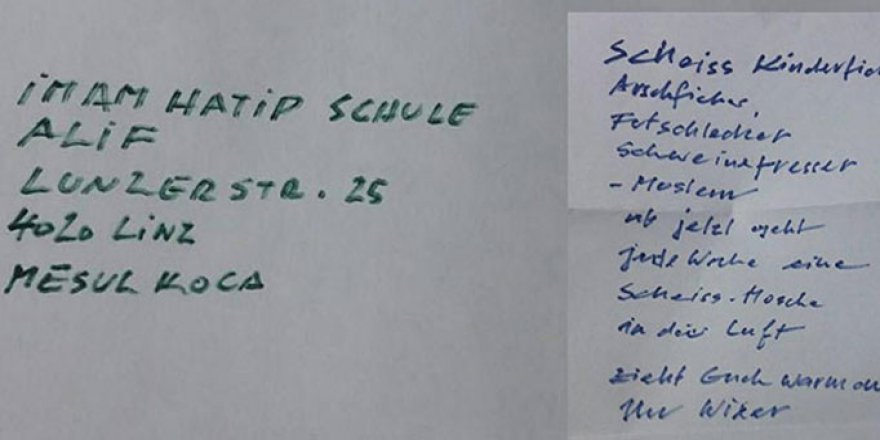 İMAM HATİP SCHULE
ALİF
LUNZERSTR. 25
4020 LİNZ
MESUL KOCA
Scheiss Kinderfic
Arschficker,
Fotschlecker
Schweinefresser
- Moslem
ab jetzt geht
jede Woche eine
Scheiss-Mosche
in die Luft
zieht Euch warm an
Ihr Wixer